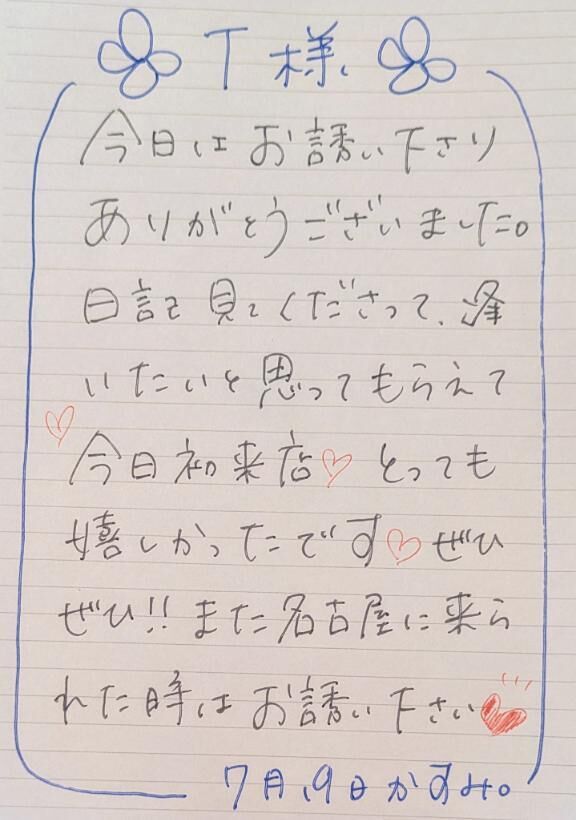 T様
今日はお誘い下さり
ありがとうございました。
日記を見てくださって、逢
いたいと思ってもらえて
今日初来店♡とっても
嬉しかったです♡ぜひ
ぜひ!!また名古屋に来ら
れた時はお誘い下さい♥
7月19日かすみ。